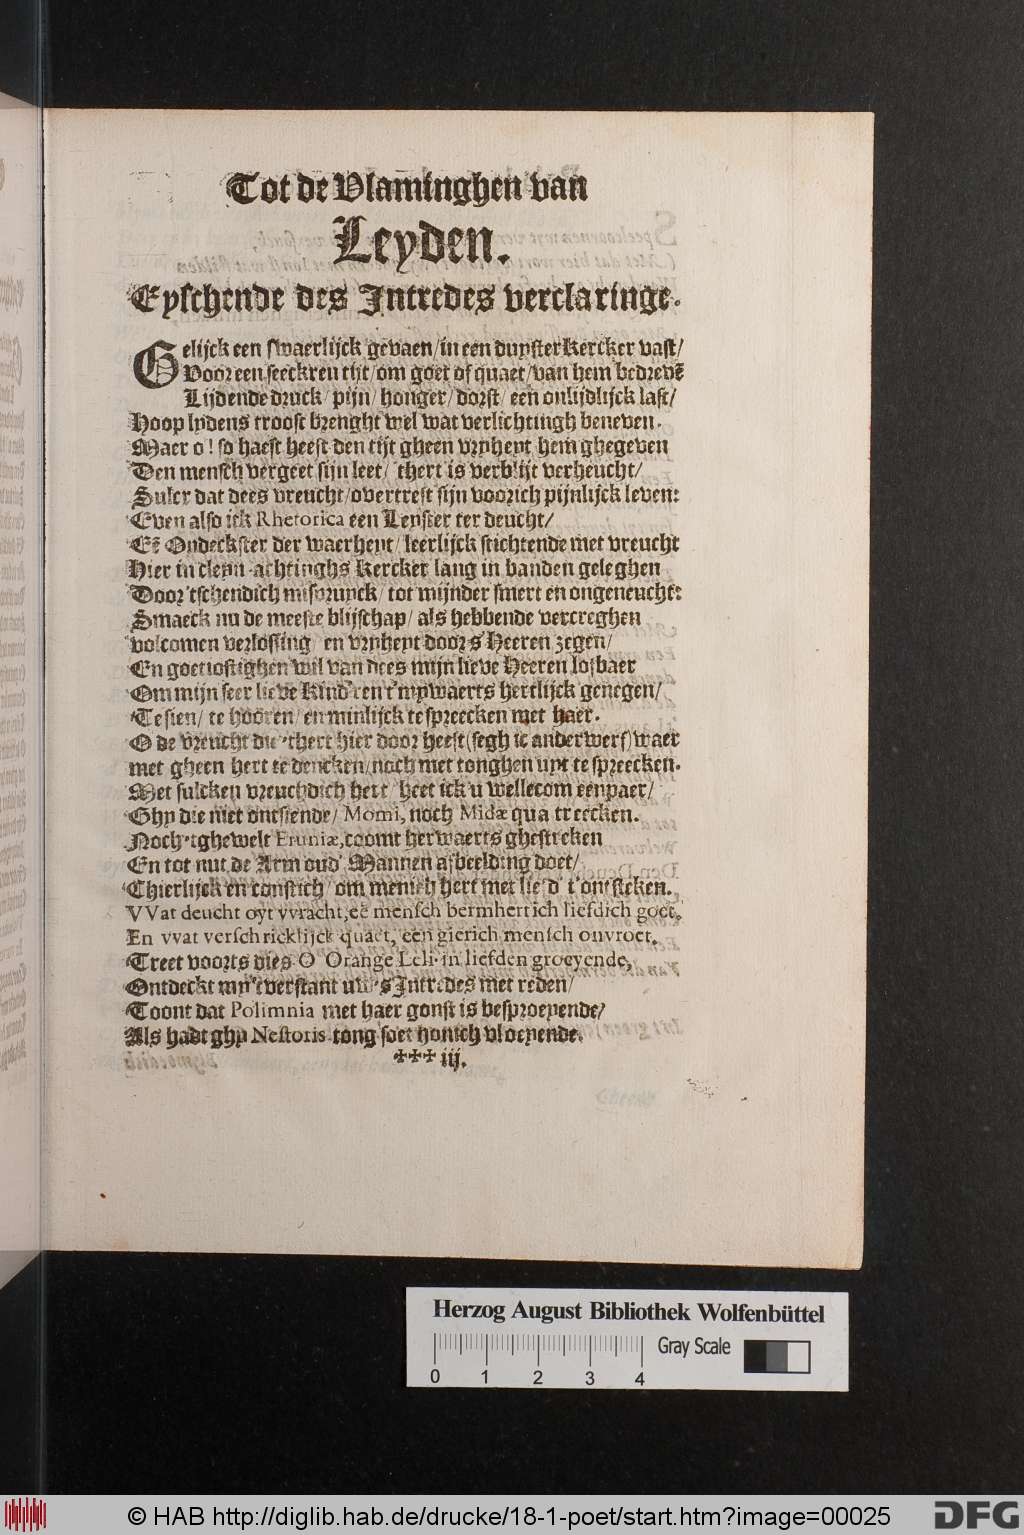 Tot de Vlaminghen van
Leyden.
Eyschende des Intredes verclaringe.
Gelijck een swaerlijck gevaen/in een duyster Kercker vast/
Voor een seeckren tijt/om goet of quaet/van hem bedrevē
Lijdende druck/ pijn/ honger/ dorst/ een onlijdlijck last/
Hoop lydens troost brenght wel wat verlichtingh beneven.
Maer o! so haest heeft den tijt gheen vryheyt hem ghegeven
Den mensch vergeet sijn leet/ thert is verblijt verheucht/
Sulcx dat dees vreucht/overtreft sijn voorich pijnlijck leven:
Even also ick Rhetorica een Leyster ter deucht/
Eē Ondeckster der waerheyt/ leerlijck stichtende met vreucht
Hier in cleyn-achtinghs Kercker lang in banden geleghen
Door 'tschendich misbruyck/ tot mijnder smert en ongeneucht:
Smaeck nu de meeste blijschap/ als hebbende vercreghen
volcomen verlossing/ en vryheyt door s'Heeren zegen/
En goetjostighen wil van dees mijn lieve Heeren lofbaer
Om mijn seer lieve Kind'ren t'mywaerts hertlijck genegen/
Te sien/ te hooren/ en minlijck te spreecken met haer.
O de vreucht die 'thert hier door heeft (segh ic anderwerf) waer
met gheen hert te dencken/noch met tonghen uyt te spreecken.
Met sulcken vreuchdich hert/ heet ick u wellecom eenpaer/
Ghy die niet ontsiende/ Momi, noch Midæ qua treecken.
Noch 'tghewelt Eruniæ, coomt herwaerts ghestreken
En tot nut de Arm oud' Mannen afbeelding doet/
Chierlijck en constich/ om mensch hert met liefd' t'ontsteken.
VVat deucht oyt vvracht, eē mensch bermhertich liefdich goet,
En vvat verschricklijck quaet, een gierich mensch onvroet.
Treet voorts dies O Orange Leli in liefden groeyende,
Ontdeckt myn 'tverstant uw's Intredes met reden/
Toont dat Polimnia met haer gonst is besproeyende/
Als hadt ghy Nestoris tong soet honich vloeyende.
✠✠✠ iij.
Herzog August Bibliothek Wolfenbüttel
Gray Scale
0 1 2 3 4
© HAB http://diglib.hab.de/drucke/18-1-poet/start.htm?image=00025
DFG